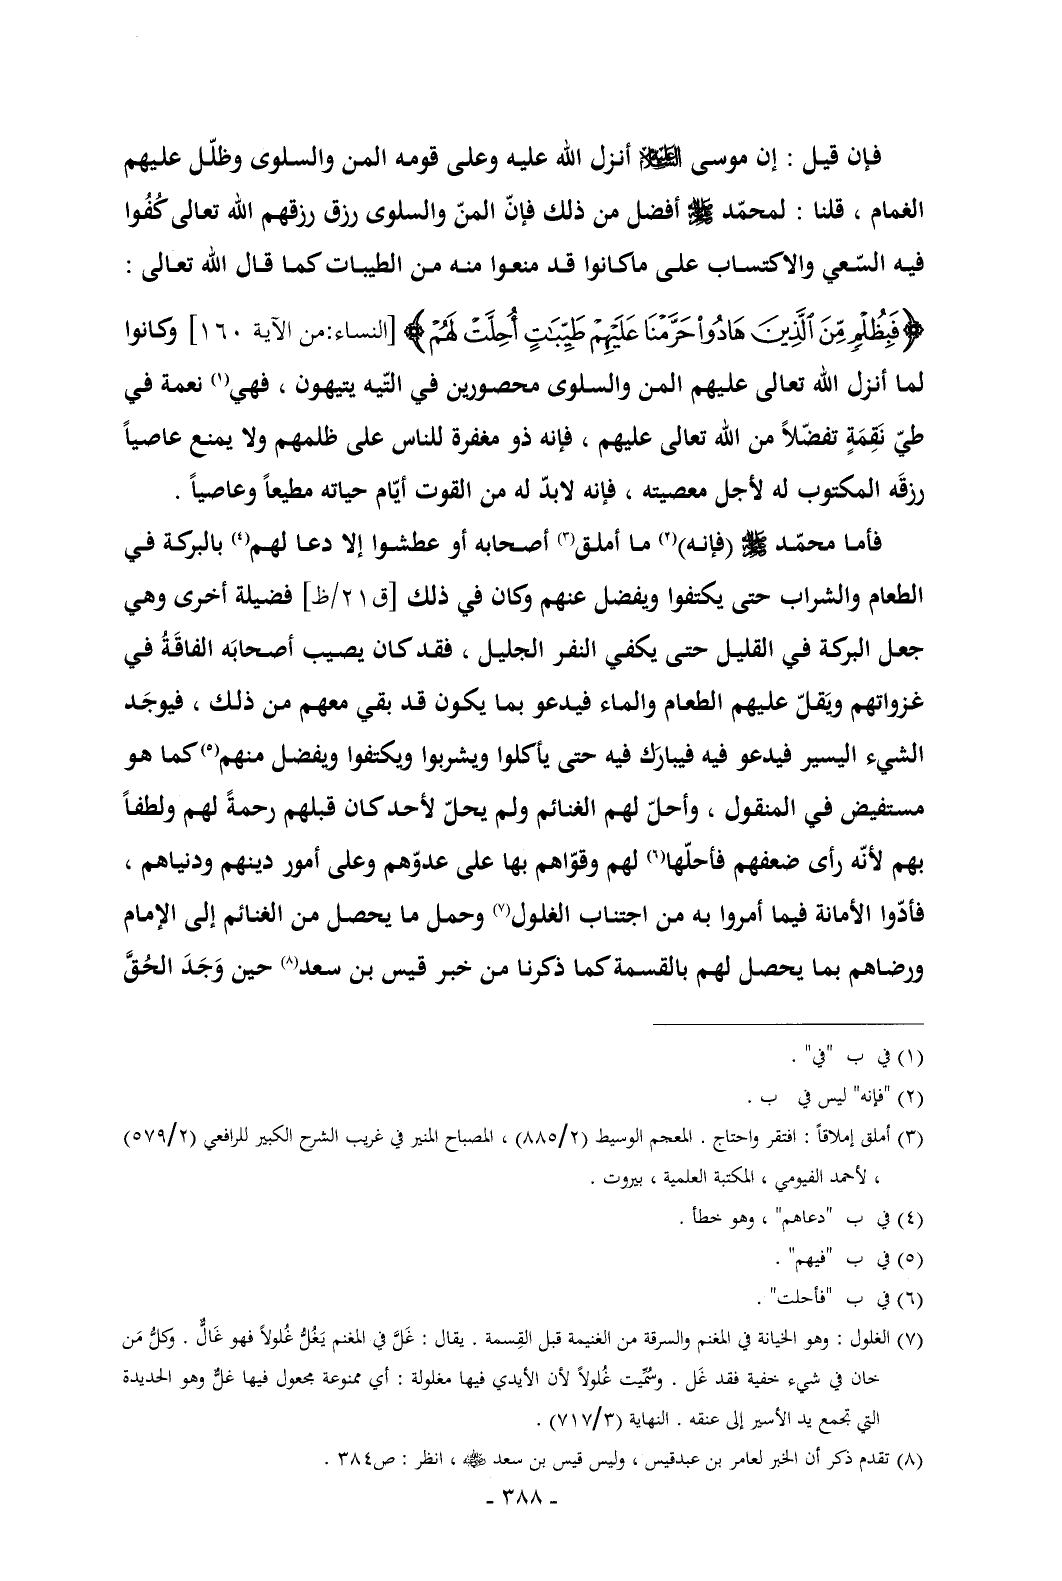 فإن قيل : إن موسى عليه السلام أنزل الله عليه وعلى قومه المن والسلوى وظلّل عليهم
الغمام ، قلنا : لمحمّد ﷺ أفضل من ذلك فإنّ المنّ والسلوى رزق رزقهم الله تعالى كُفُوا
فيه السّعي والاكتساب على ماكانوا قد منعوا منه من الطيبات كما قال الله تعالى :
﴿فَبِظُلْمٍ مِّنَ ٱلَّذِينَ هَادُوا۟ حَرَّمْنَا عَلَيْهِمْ طَيِّبَٰتٍ أُحِلَّتْ لَهُمْ﴾ [النساء:من الآية ١٦٠] وكانوا
لما أنزل الله تعالى عليهم المن والسلوى محصورين في التّيه يتيهون ، فهي(١) نعمة في
طيّ نَقِمَةٍ تفضّلاً من الله تعالى عليهم ، فإنه ذو مغفرة للناس على ظلمهم ولا يمنع عاصياً
رزقَه المكتوب له لأجل معصيته ، فإنه لابدّ له من القوت أيّام حياته مطيعاً وعاصياً .
فأما محمّد ﷺ (فإنه)(٢) ما أملق(٣) أصحابه أو عطشوا إلا دعا لهم(٤) بالبركة في
الطعام والشراب حتى يكتفوا ويفضل عنهم وكان في ذلك [ق٢١/ظ] فضيلة أخرى وهي
جعل البركة في القليل حتى يكفي النفر الجليل ، فقد كان يصيب أصحابَه الفاقَةُ في
غزواتهم ويَقلّ عليهم الطعام والماء فيدعو بما يكون قد بقي معهم من ذلك ، فيوجَد
الشيء اليسير فيدعو فيه فيبارَك فيه حتى يأكلوا ويشربوا ويكتفوا ويفضل منهم(٥) كما هو
مستفيض في المنقول ، وأحلّ لهم الغنائم ولم يحلّ لأحد كان قبلهم رحمةً لهم ولطفاً
بهم لأنّه رأى ضعفهم فأحلّها(٦) لهم وقوّاهم بها على عدوّهم وعلى أمور دينهم ودنياهم ،
فأدّوا الأمانة فيما أمروا به من اجتناب الغلول(٧) وحمل ما يحصل من الغنائم إلى الإمام
ورضاهم بما يحصل لهم بالقسمة كما ذكرنا من خبر قيس بن سعد(٨) حين وَجَدَ الحُقَّ
(١) في ب "في" .
(٢) "فإنه" ليس في ب .
(٣) أملق إملاقاً : افتقر واحتاج . المعجم الوسيط (٨٨٥/٢) ، المصباح المنير في غريب الشرح الكبير للرافعي (٥٧٩/٢)
، لأحمد الفيومي ، المكتبة العلمية ، بيروت .
(٤) في ب "دعاهم" ، وهو خطأ .
(٥) في ب "فيهم" .
(٦) في ب "فأحلت" .
(٧) الغلول : وهو الخيانة في المغنم والسرقة من الغنيمة قبل القِسمة . يقال : غَلَّ في المغنم يَغُلُّ غُلولاً فهو غَالٌّ . وكلُّ مَن
خان في شيء خفية فقد غَل . وسُمِّيت غُلولاً لأن الأيدي فيها مغلولة : أي ممنوعة مجعول فيها غلٌّ وهو الحديدة
التي تجمع يد الأسير إلى عنقه . النهاية (٧١٧/٣) .
(٨) تقدم ذكر أن الخبر لعامر بن عبدقيس ، وليس قيس بن سعد رضي الله عنه ، انظر : ص٣٨٤ .
- ٣٨٨ -